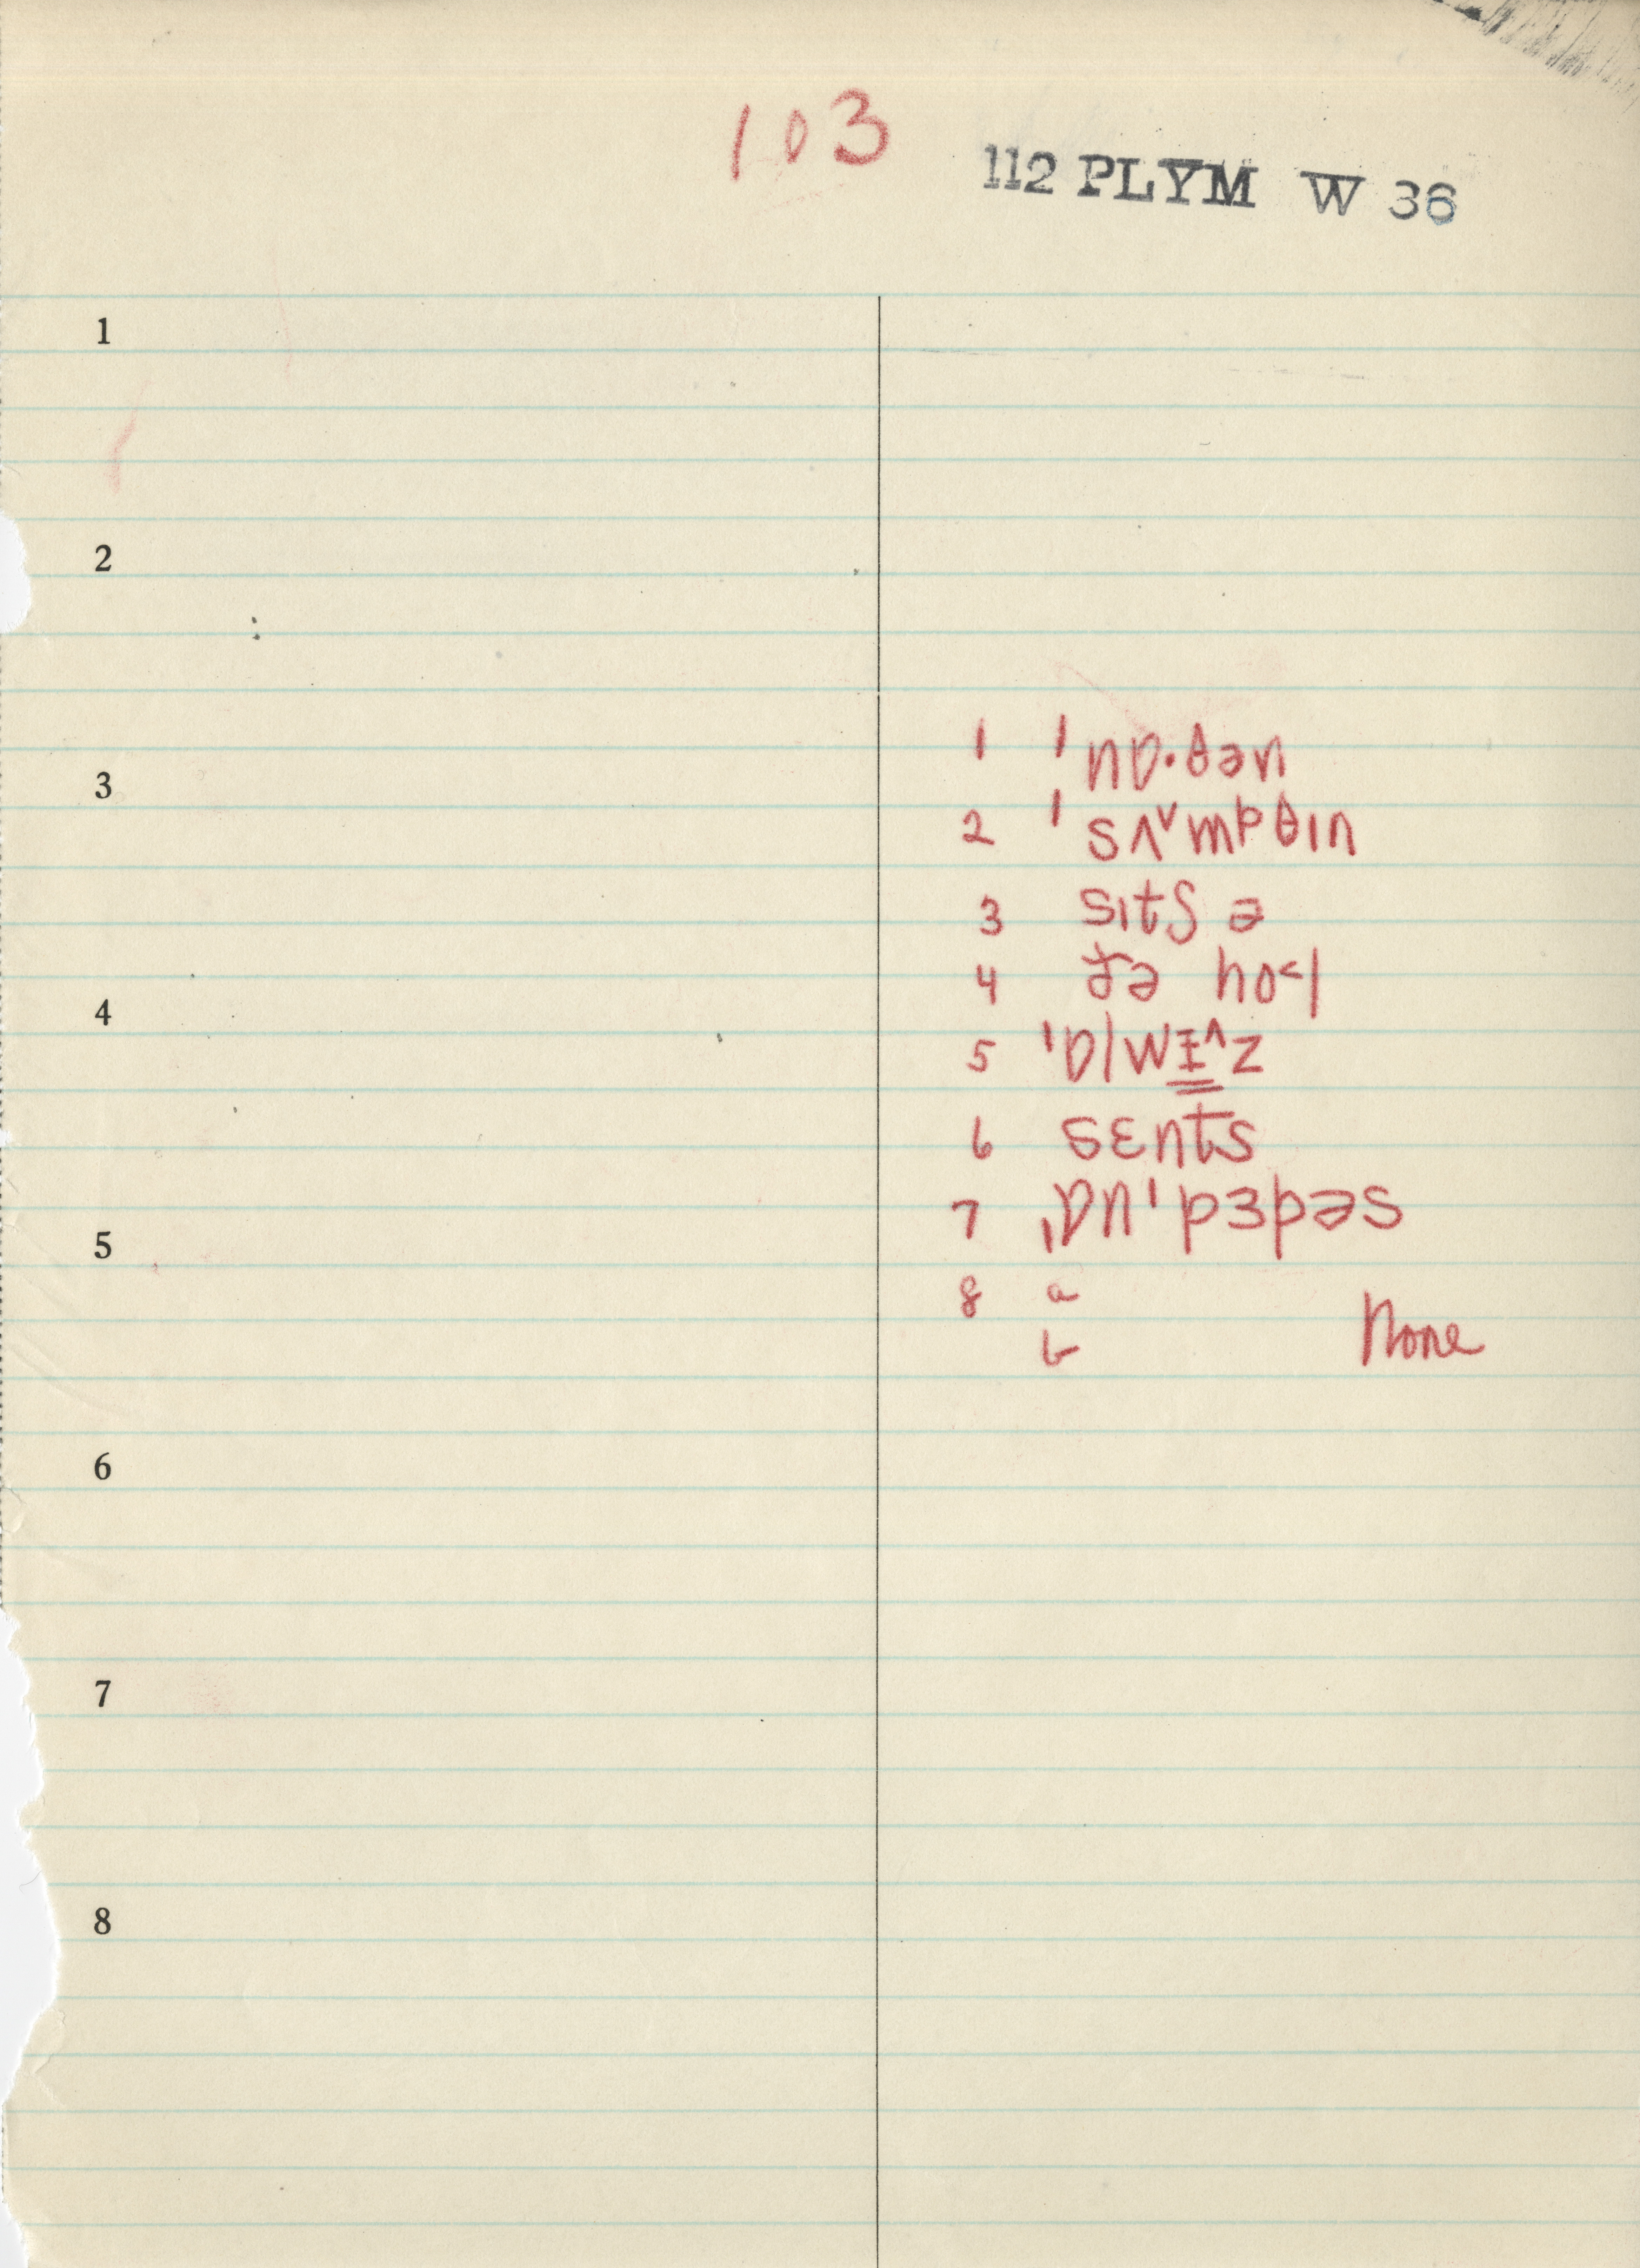 103
112 PLYM W 36
1
2
1 ˈnɒ·θən
3
2 ˈsʌ˅mpθɪn
3 sɪtʃ ə
4 ðə ho˂l
4
5 ˈɒlwɪ˄z
6 sɛnts
7 ˌɒnˈpɜpəs
5
8 a
b None
6
7
8